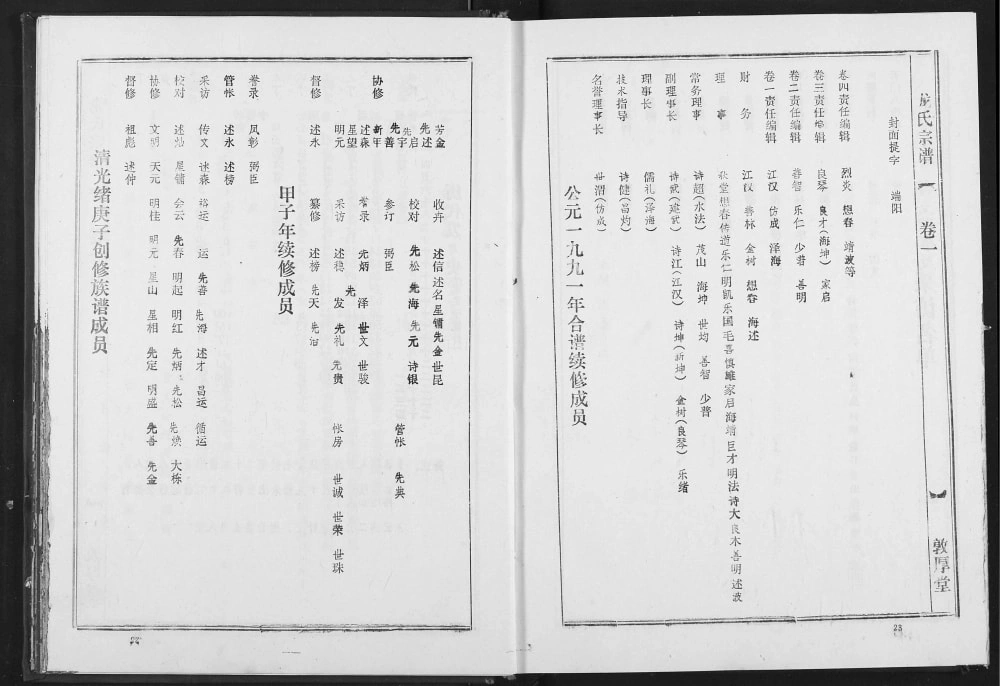 清光绪庚子创修族谱成员
督修 祖彪 述仲
协修 文明 天元 明桂 明元 星山 星相 先定 明盛 先吾 先金
校对 述灿 星镛 会云 先春 明起 明红 先炳 先松 先焕 大栋
采访 传文 述森 裕运 运 先善 先海 述才 昌运 循运
管帐 述永 述榜
誊录 凤彰 弼臣
甲子年续修成员
督修 述永 纂修 述榜 先天 先治
明元 采访 述稳 先发 先礼 先贵 帐房 世诚 世荣 世珠
星望
述森 誊录 先炳 先泽 世文 世骏
协修 新年
先善 参订 弼臣 管帐 先典
先宇
先启 校对 先松 先海 先元 诗银
先述
芳金 收弁 述信 述名 星镛 先金 世昆
公元一九九一年合谱续修成员
名誉理事长 世渭(仿成)
技术指导 诗健(昌灼)
理事长 儒礼(泽海)
副理事长 诗武(建武) 诗江(江汉) 诗坤(新坤) 金树(良琴) 乐绪
常务理事 诗超(水法) 茂山 海坤 世均 善智 少普
理事 秋堂 想春 传道 乐仁 明凯 乐国 毛喜 慎雎 家启 海靖 巨才 明法 诗大 良木 善明 述波
财务 江汉 善林 金树 想春 海述
卷一责任编辑 江汉 仿成 泽海
卷二责任编辑 善智 乐仁 少普 善明
卷三责任编辑 良琴 良才(海坤) 家启
卷四责任编辑 烈炎 想春 靖波等
封面提字 端阳
氏宗谱 卷一 敦厚堂
23